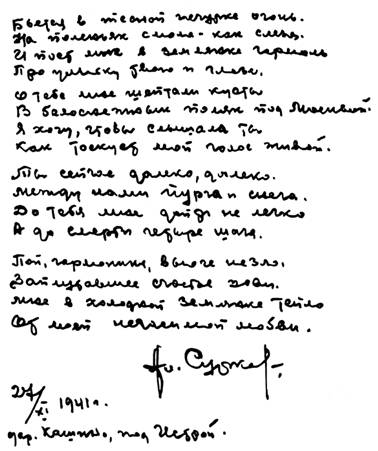 Бьется в тесной печурке огонь.
На поленьях смола - как слеза.
И поет мне в землянке гармонь
Про улыбку твою и глаза.
О тебе мне шептали кусты
В белоснежных полях под Москвой.
Я хочу, чтобы слышала ты
Как тоскует мой голос живой.
Ты сейчас далеко, далеко.
Между нами пурга и снега.
До тебя мне дойти не легко
А до смерти четыре шага.
Пой, гармоника, вьюге назло.
Заплутавшее счастье зови.
Мне в холодной землянке тепло
От моей негасимой любви.
Ал. Сурков
27/XI 1941 г.
дер. Кашино, под Истрой.